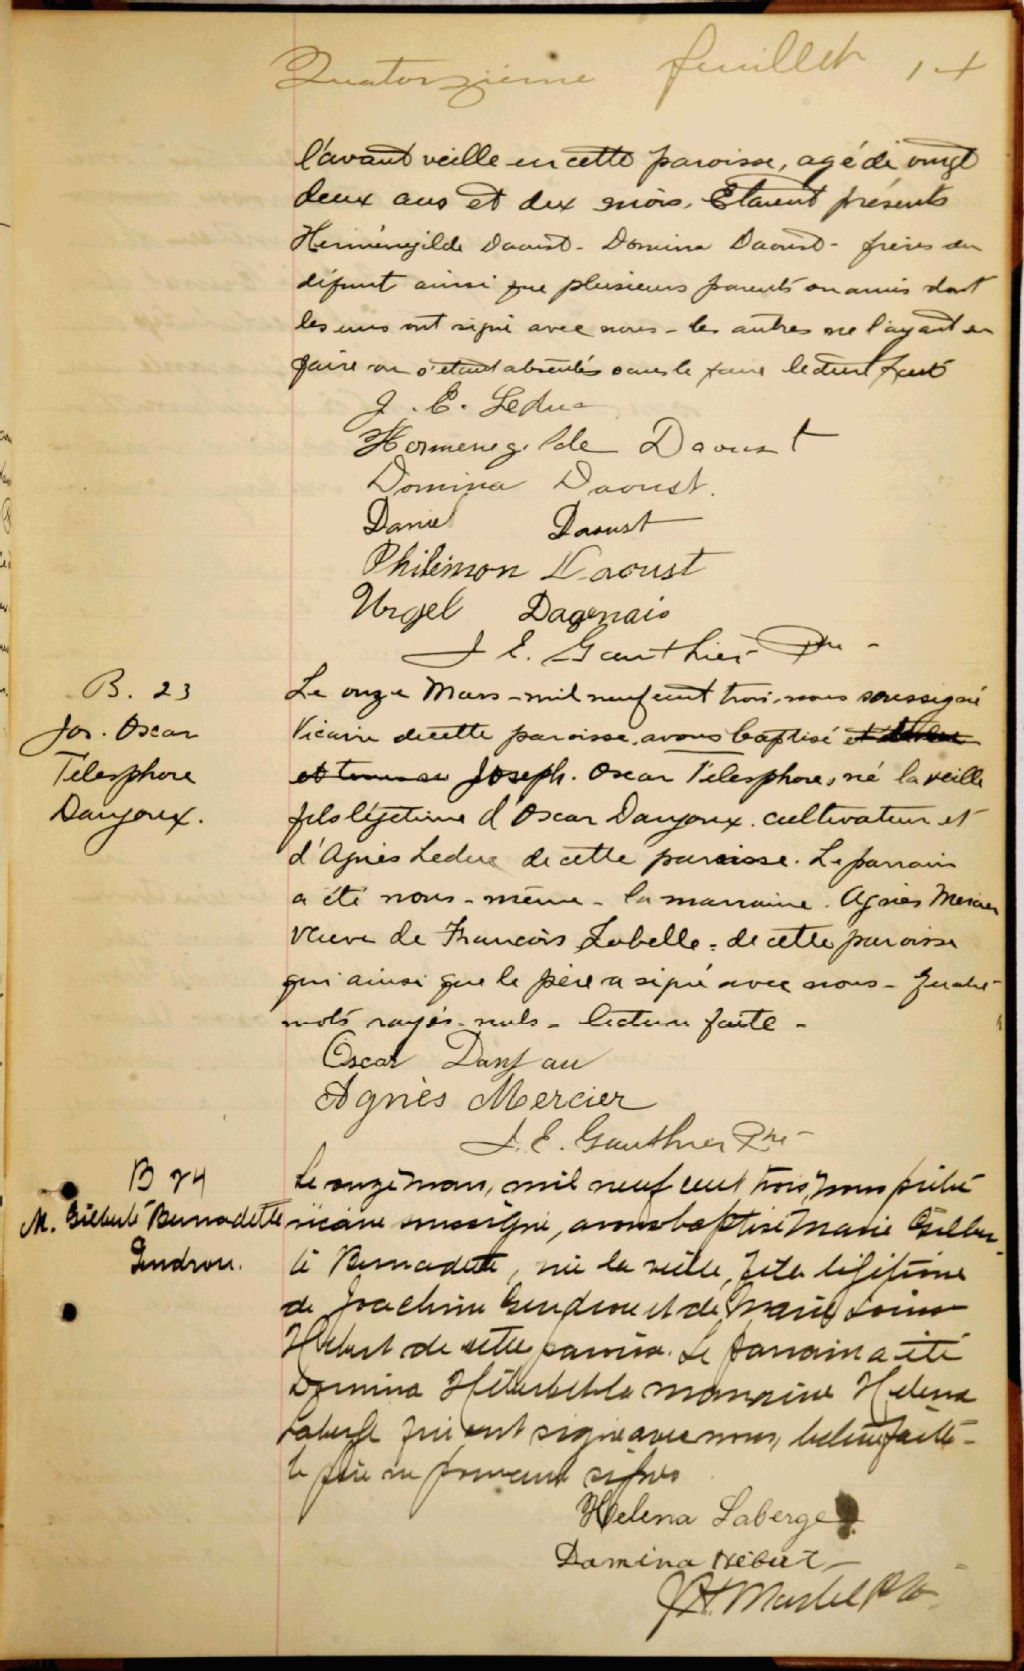 Quatorzième feuillet 14
l'avant veille en cette paroisse, agé de vingt
deux ans et dix mois. Etaient présents
Herménégilde Daoust - Domina Daoust - frères du
défunt ainsi que plusieurs parents ou amis dont
les uns ont signé avec nous - les autres ne l'ayant su
faire ou s'étant absentés sans le faire lecture faite
J. E. Leduc
Hormenegilde Daoust
Domina Daoust.
Daniel Daoust
Philémon Daoust
Urgel Dagenais
J E. Gauthier Ptre -
B. 23
Jos. Oscar
Télesphore
Danjoux.
Le onze Mars - mil neuf cent trois, nous soussigné
Vicaire de cette paroisse, avons baptisé et
et Joseph. Oscar Télesphore, né la veille
fils légitime d'Oscar Danjoux. cultivateur et
d'Agnès Leduc de cette paroisse. Le parrain
a été nous-même - la marraine. Agnès Mercier
veuve de François Labelle - de cette paroisse
qui ainsi que le père a signé avec nous - Quatre
mots rayés nuls - lecture faite -
Oscar Danjau
Agnès Mercier
J. E. Gauthier Ptre -
B 24
M. Gilberte Bernadette
Gendron.
Le onze mars, mil neuf cent trois, nous prêtre
vicaire soussigné, avons baptisé Marie Gilber-
te Bernadette, née la veille, fille légitime
de Joachim Gendron et de Marie Louise
Hébert de cette paroisse. Le parrain a été
Domina Hébert et la marraine Helena
Laberge qui ont signé avec nous, lecture faite -
le père ne pouvant signer
Helena Laberge
Domina Hébert
J.H. Martel Ptre